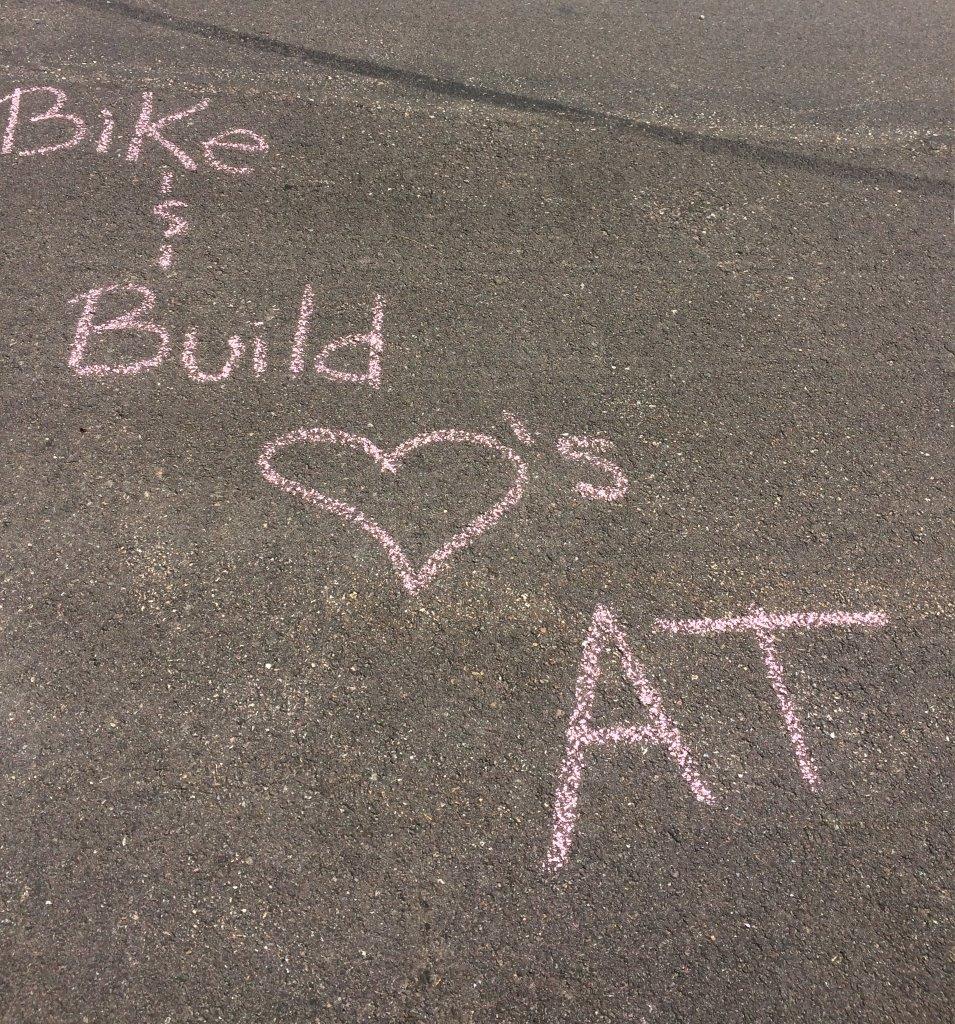 Bike
&
Build
♡'s
AT